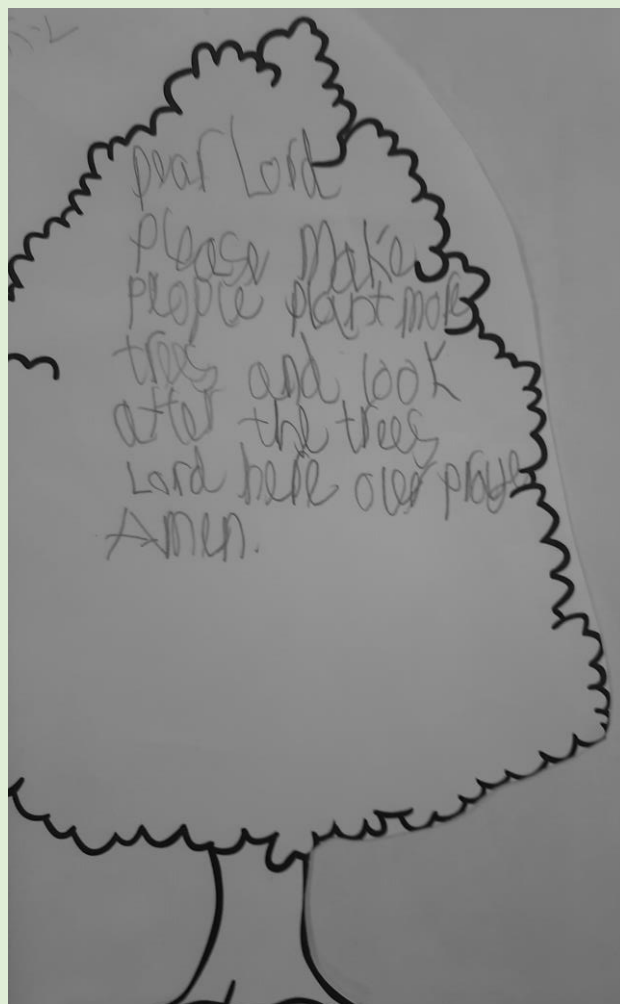 Dear Lord
please make
people plant more
trees and look
after the trees
Lord here over prayer
Amen.